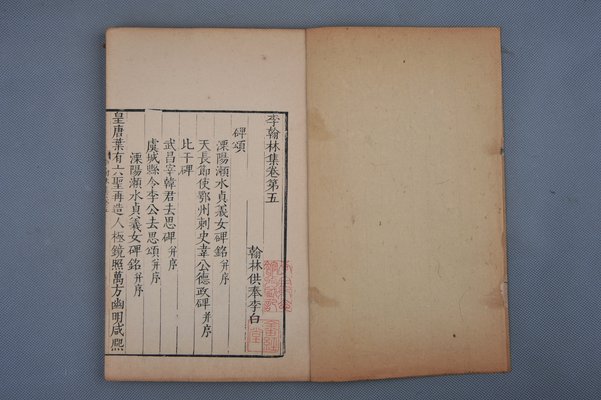 李翰林集卷第五
翰林供奉李白
碑頌
溧陽瀨水貞義女碑銘并序
天長節使鄂州刺史韋公德政碑并序
比干碑
武昌宰韓君去思碑并序
虞城縣令李公去思頌并序
溧陽瀨水貞義女碑銘并序
皇唐葉有六聖再造人極鏡照萬方幽明咸熙